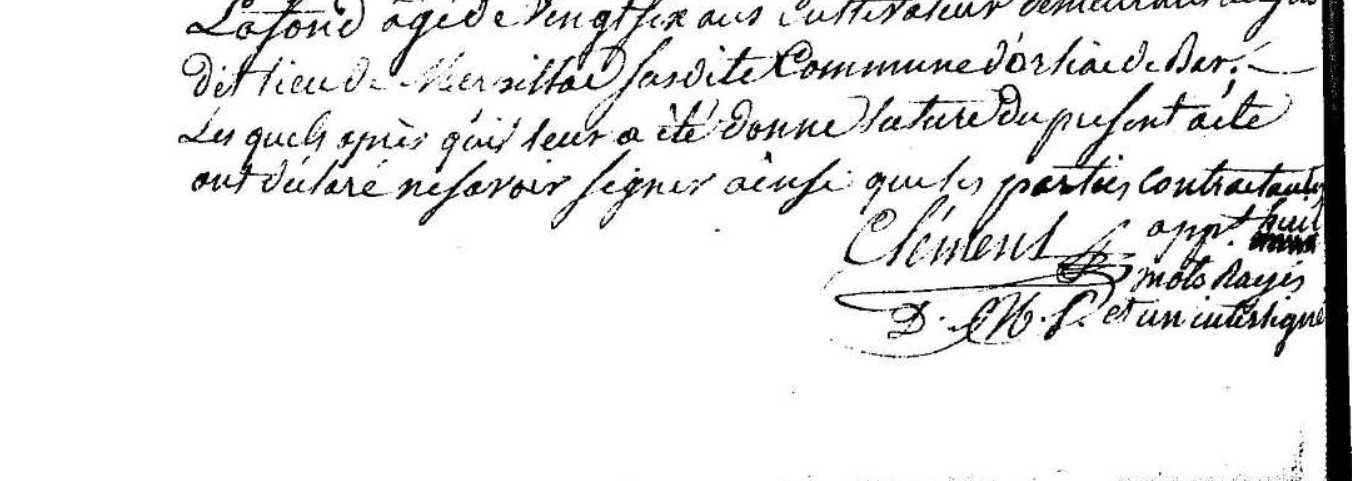 Lafond âgé de vingt six ans Cultivateur demeurant au
dit lieu de Mersillac susdite Commune d'orliac de Bar.
Les quels après qu'il leur a été donné lecture du présent acte
ont déclaré ne savoir signer ainsi que les parties contractantes
Clément appt. huit
mots Rayés
D. M. P. et un interligne